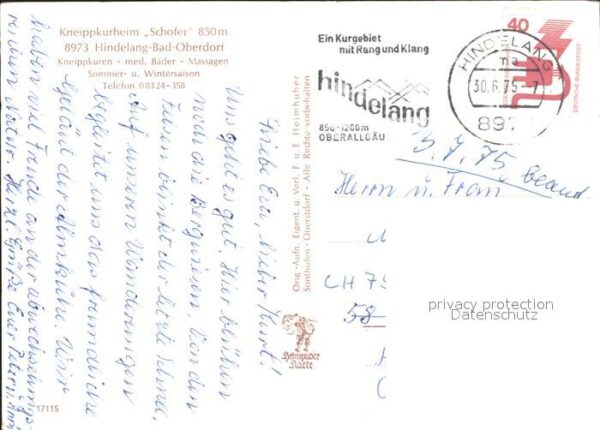 Kneippkurheim „Schofer" 850 m
8973 Hindelang-Bad-Oberdorf
Kneippkuren - med. Bäder - Massagen
Sommer- u. Wintersaison
Telefon 08324-358
Liebe Eva, lieber Kurt!
Uns geht es gut. Hier blühen
noch die Bergwiesen. Von den
Felsen blinkt der letzte Schnee,
auf unseren Wanderungen
begleitet uns das fröhliche
Geläut der Almkühe. Wir
haben viel Freude an der
Herzl. Grüße Euer
17115
Orig.-Aufn. Eigent. u. Verl. F. u. E. Heimhuber
Sonthofen - Oberstdorf - Alle Rechte vorbehalten
Heimhuber
Karte
Ein Kurgebiet
mit Rang und Klang
hindelang
850-1200m
OBERALLGÄU
HINDELANG
30.6.75-7
897
40
DEUTSCHE BUNDESPOST
3.7.75 beantw.
Herrn u. Frau
CH 75
58
privacy protection
Datenschutz